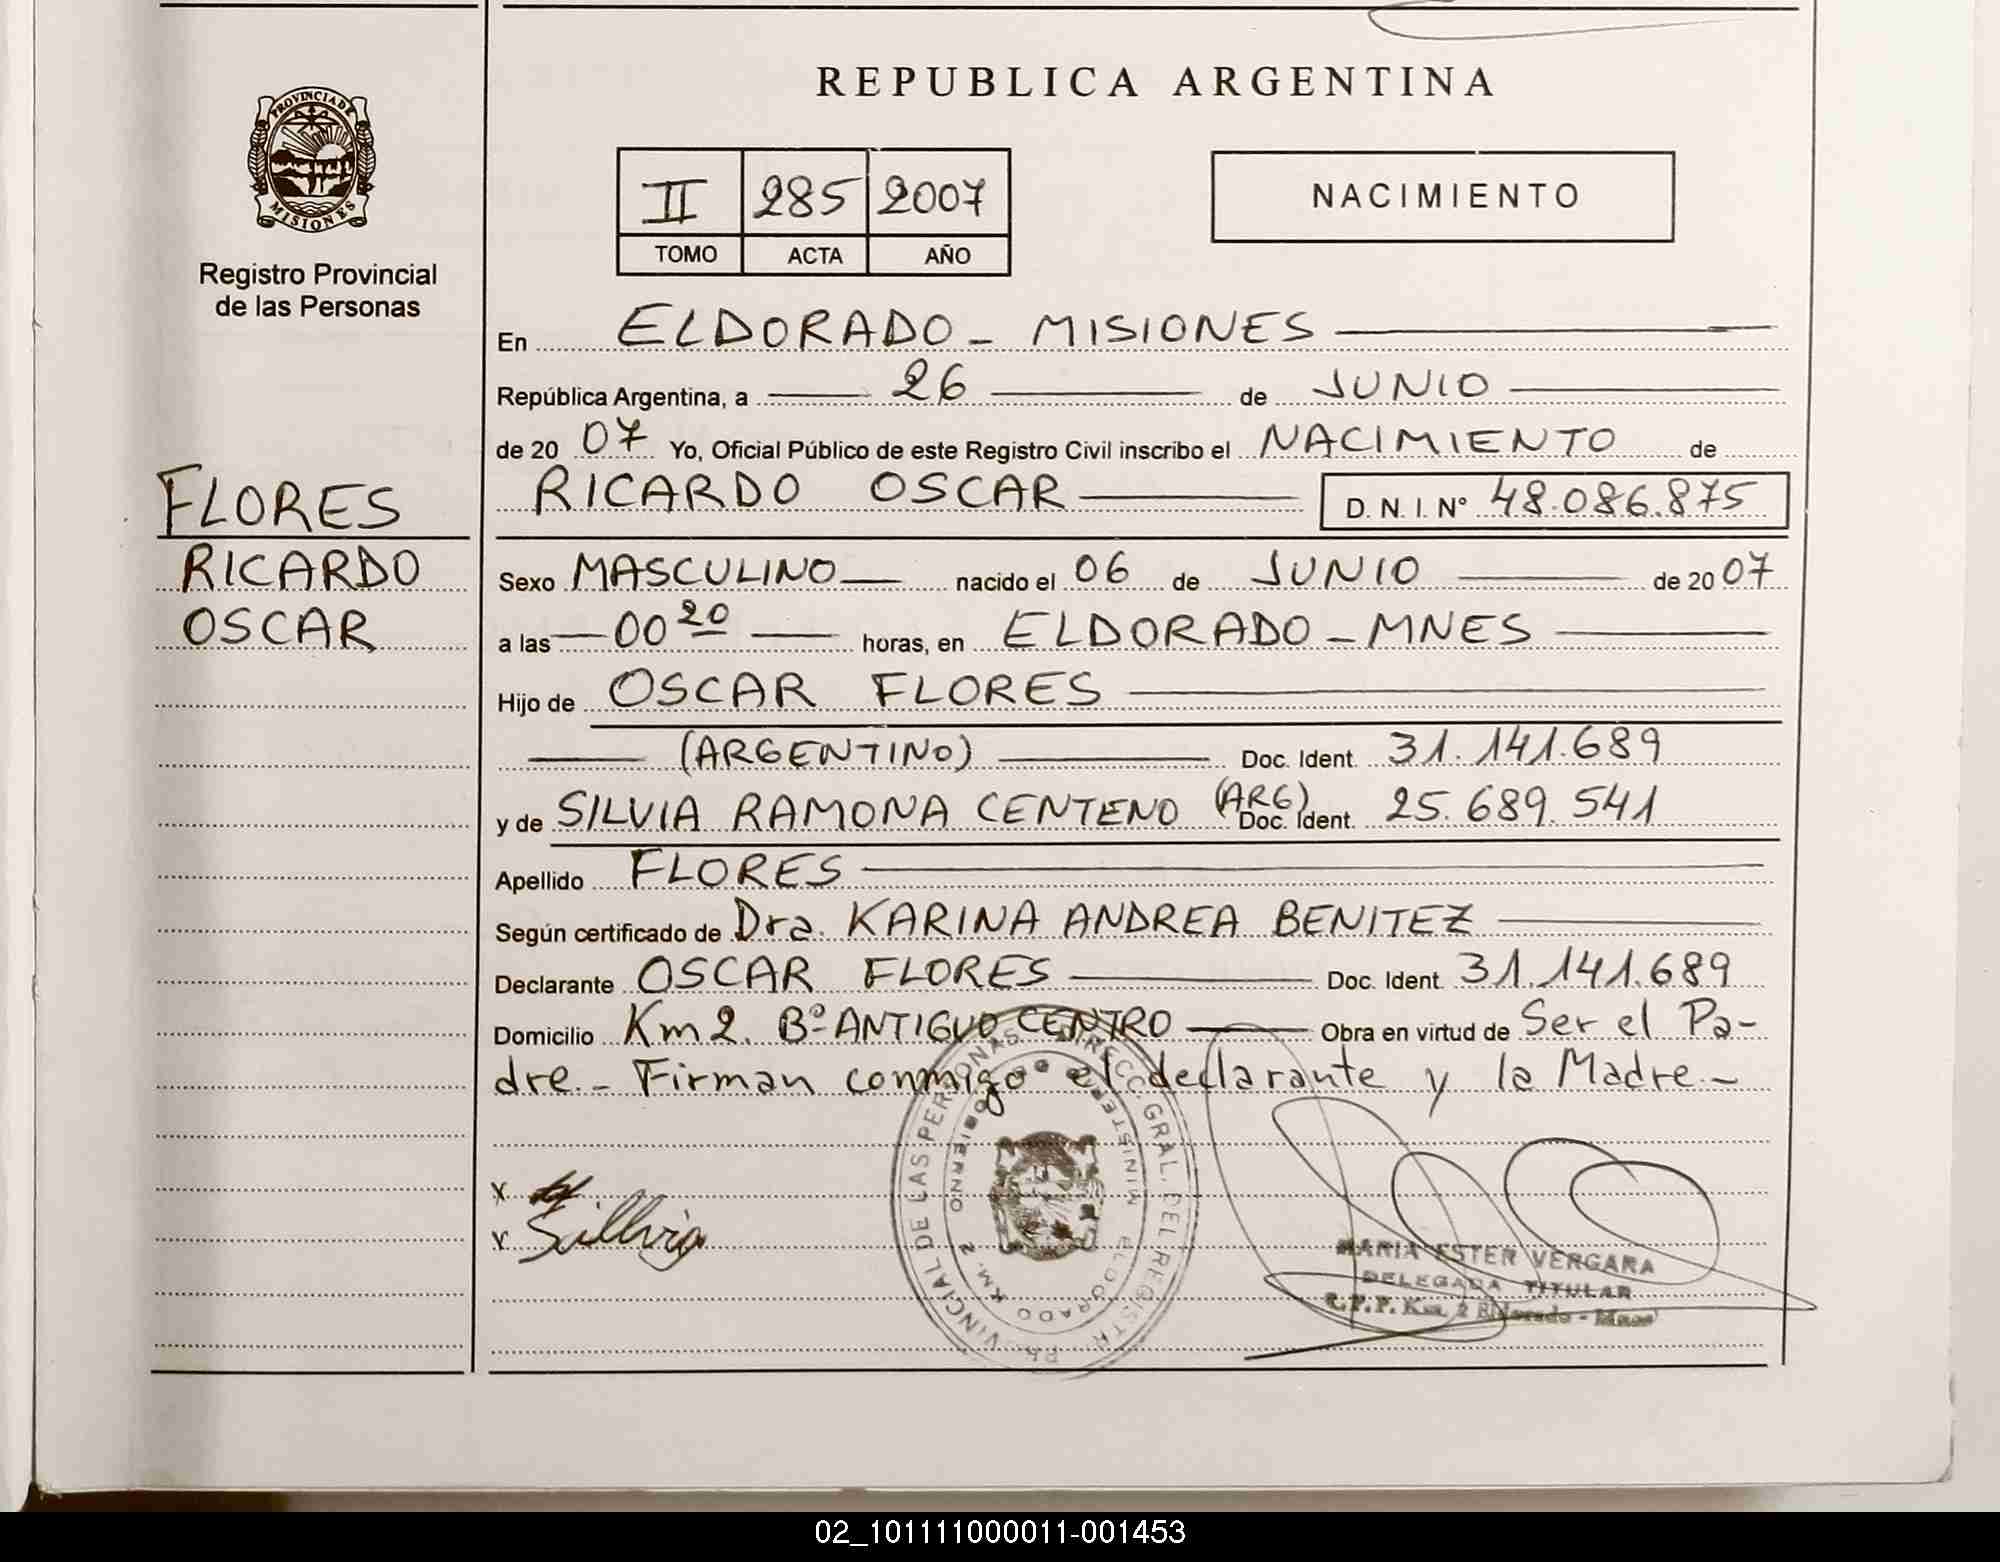 REPUBLICA ARGENTINA
PROVINCIA DE
MISIONES
Registro Provincial
de las Personas
II 285 2007
TOMO ACTA AÑO
NACIMIENTO
En ELDORADO - MISIONES
República Argentina, a 26 de JUNIO
de 20 07 Yo, Oficial Público de este Registro Civil inscribo el NACIMIENTO de
FLORES
RICARDO
OSCAR
RICARDO OSCAR D. N. I. Nº 48.086.875
Sexo MASCULINO nacido el 06 de JUNIO de 20 07
a las 00 20 horas, en ELDORADO - MNES
Hijo de OSCAR FLORES
(ARGENTINO) Doc. Ident. 31.141.689
y de SILVIA RAMONA CENTENO (ARG) Doc. Ident. 25.689.541
Apellido FLORES
Según certificado de Dra. KARINA ANDREA BENITEZ
Declarante OSCAR FLORES Doc. Ident. 31.141.689
Domicilio Km 2. Bº ANTIGUO CENTRO Obra en virtud de Ser el Pa-
dre.- Firman conmigo el declarante y la Madre.-
x
x Sillvia
DIRECC. GRAL. DEL REGISTR. PROVINCIAL DE LAS PERSONAS
MINISTER GOBIERNO
ELDORADO KM. 2
MARIA ESTER VERGARA
DELEGADA TITULAR
R.P.P. Km. 2 Eldorado - Mnes
02_101111000011-001453